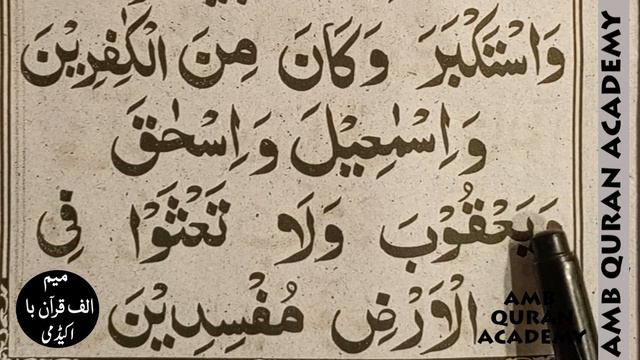 وَاسْتَكْبَرَ وَكَانَ مِنَ الْكٰفِرِيْنَ
وَاِسْمٰعِيْلَ وَاِسْحٰقَ
وَيَعْقُوْبَ وَلَا تَعْثَوْا فِى
الْاَرْضِ مُفْسِدِيْنَ
AMB QURAN ACADEMY
AMB
QURAN
ACADEMY
میم
الف قرآن با
اکیڈمی